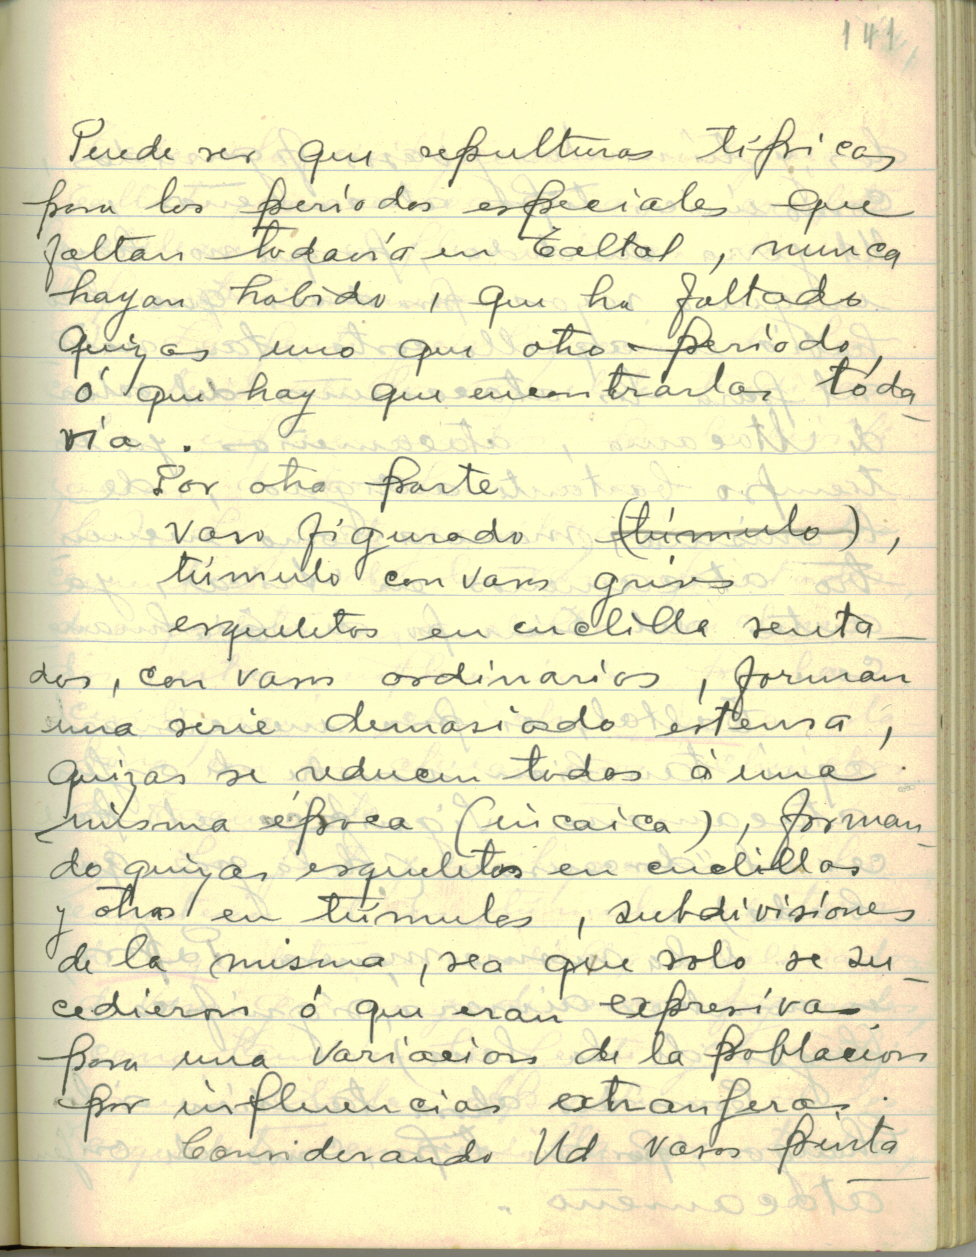 141
Puede ser que sepulturas típicas
para los períodos especiales que
faltan todavía en Taltal, nunca
hayan habido, que ha faltado
quizas uno que otro período,
ó que hay que encontrarlas toda-
vía.
Por otra parte
vaso figurado (túmulo),
túmulo con vasos grises
esqueletos en cuclilla senta-
dos, con vasos ordinarios, forman
una serie demasiado estensa,
quizas se reducen todos á una
misma época (incaica), forman-
do quizas esqueletos en cuclillas
y otros en túmulos, subdivisiones
de la misma, sea que solo se su-
cedieron ó que eran expresivas
para una variacion de la poblacion
por influencias extrangeras.
Considerando Ud vasos pinta-